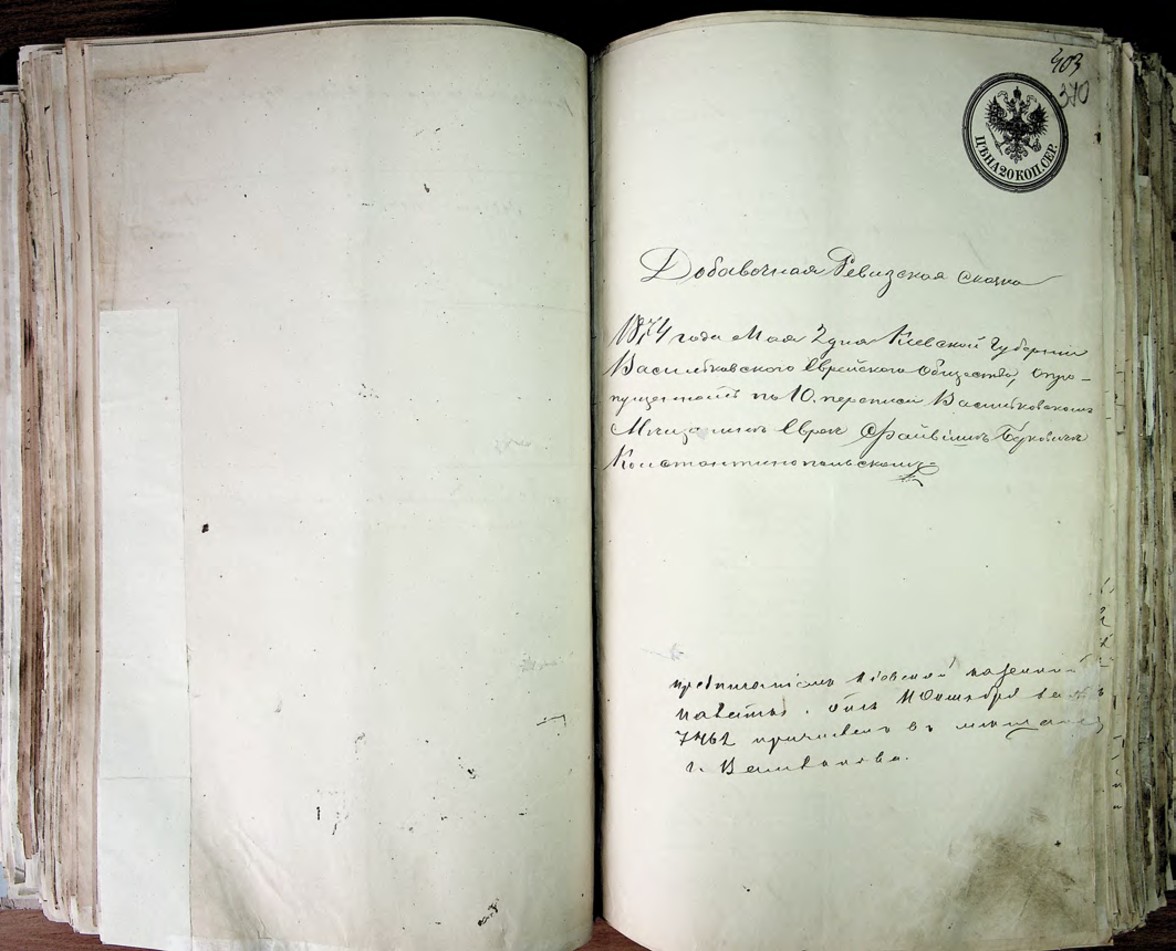 403
370
ЦѢНА 20 КОП. СЕР.
Добавочная Ревизская сказка
1874 года Мая 2 дня Кіевской Губерніи
Васильковскаго Еврейскаго Общества, о про-
пущенномъ по 10. переписи Васильковскомъ
Мѣщанинѣ Евреѣ
Константинопольскомъ
предписаніемъ Кіевской казенной
палаты. отъ 11 Октября за №
7462 причисленъ въ мѣщане
г. Василькова.